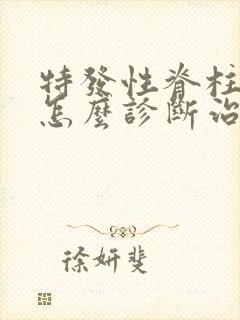 特發性脊柱
怎麼診斷治
徐妍斐